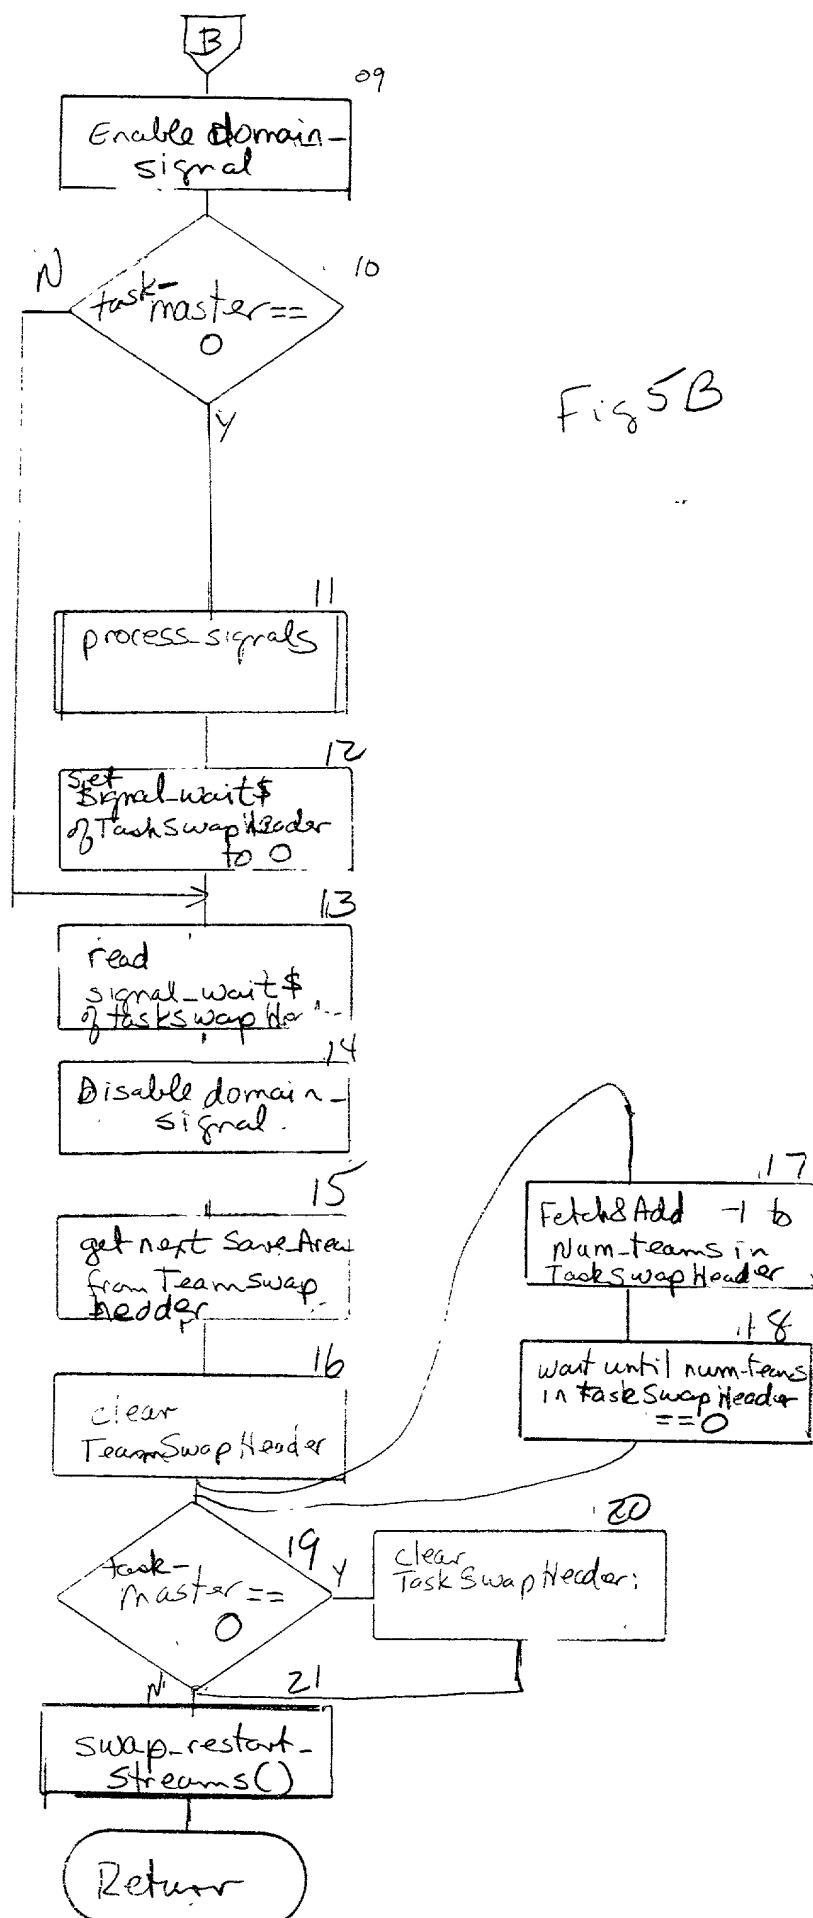 B
09
Enable domain-
signal
10
N
task-
master ==
0
Y
Fig 5B
11
process_signals
12
set
signal_wait$
of TaskSwapHeader
to 0
13
read
signal_wait$
of taskSwap
14
Disable domain-
signal.
15
get next Save_Area
from TeamSwap
hedder
16
clear
TeamSwapHeader
17
Fetch&Add -1 to
Num-teams in
TaskSwapHeader
18
wait until num-teams
in taskSwapHeader
==0
19
task-
master ==
0
Y
N
20
clear
TaskSwapHeader;
21
swap_restart_
streams()
Return